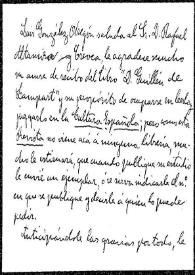 Luis González Obregón saluda al Sr. D. Rafael
Altamira y Crevea, le agradece mucho
su acuse de recibo del libro "D. Guillén de
Lampart", su propósito de ocuparse en leerlo y
juzgarlo en la Cultura Española; pero como esta
Revista no viene acá a ninguna librería, mu-
cho le estimará, que cuando publique su estudio
le envíe un ejemplar, o se sirva indicarle el n.º
en que se publique y decirle a quien lo puede
pedir.
Anticipándole las gracias por todo, le